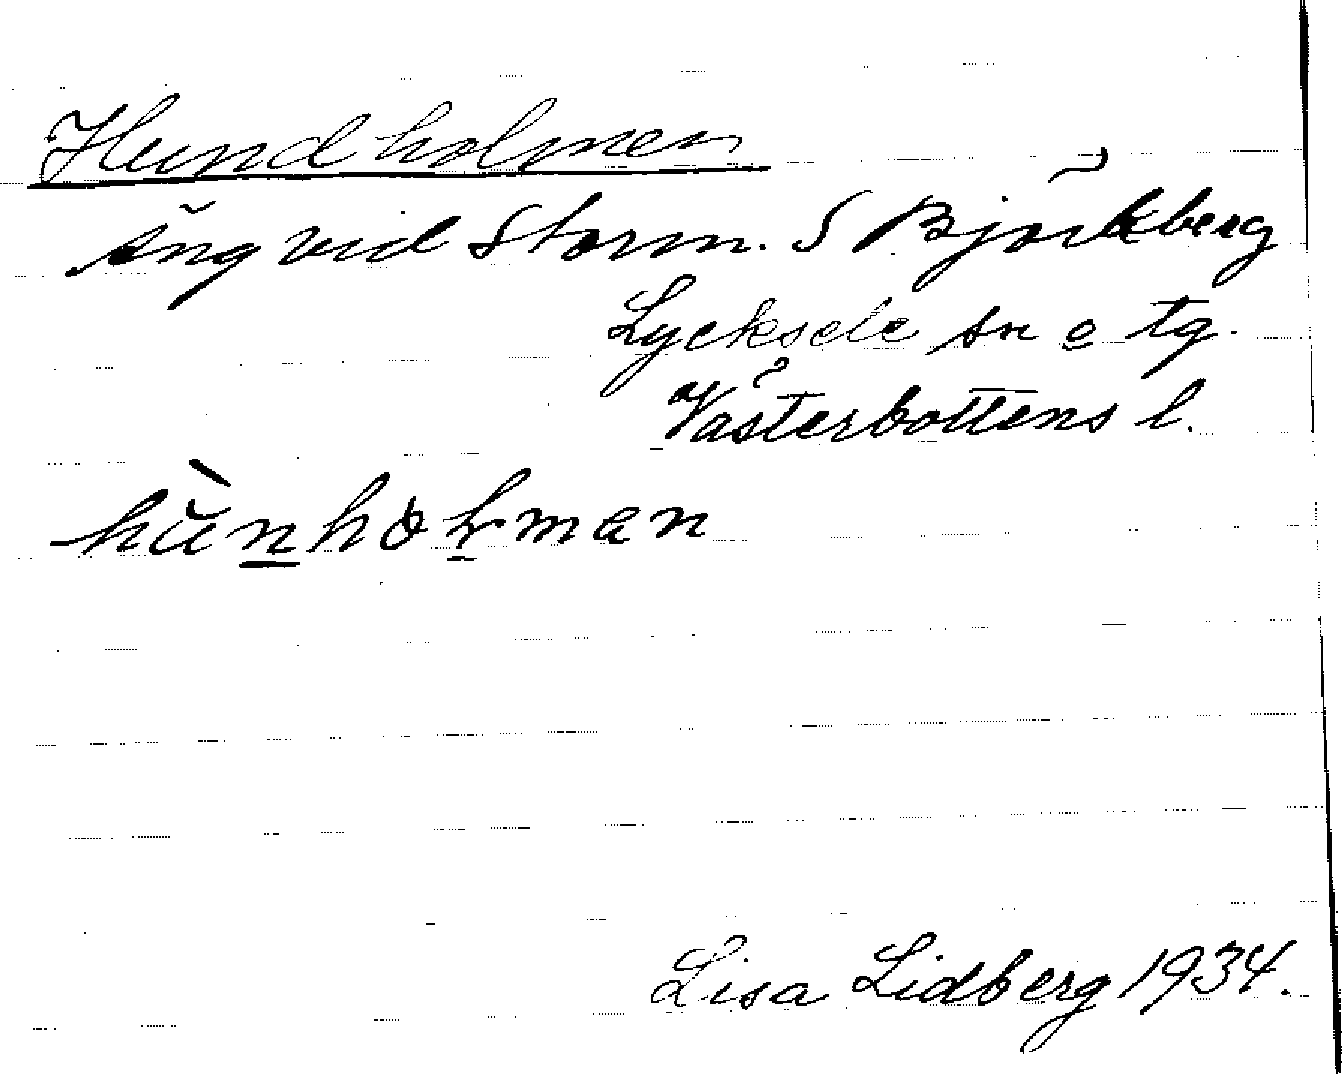 Hundholmen
Äng vid Storm. S Björkberg
Lycksele sn o tg.
Västerbottens l.
hùnhoḷman
Lisa Lidberg 1934.